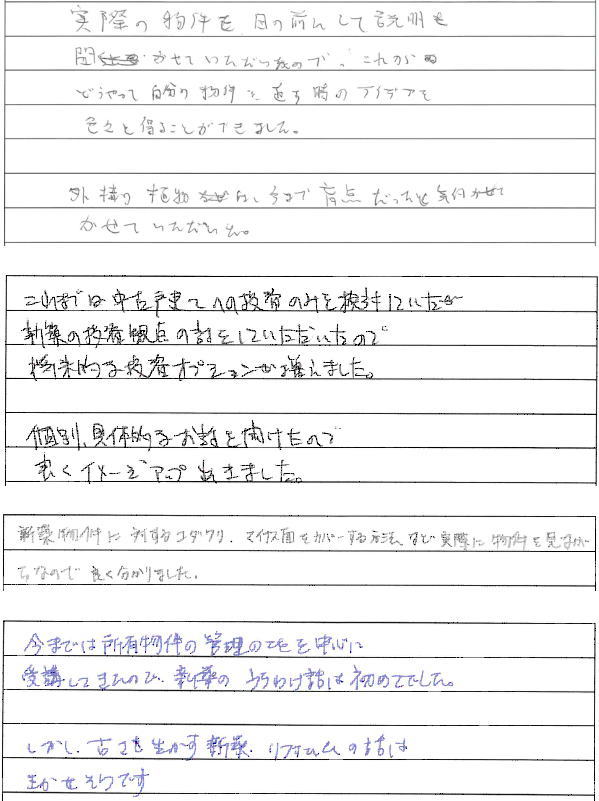 実際の物件を目の前にして説明を
聞かせていただいたので、これから
どうやって自分の物件を造る時のアイデアを
色々と得ることができました。
外構の植物は、今まで盲点だったと気付
かせていただいた。
これまでは中古戸建てへの投資のみを検討していたが
新築の投資観点の話をしていただいたので
将来的な投資オプションが増えました。
個別、具体的なお話を聞けたので
良くイメージアップ出来ました。
新築物件に対するコダワリ、マイナス面をカバーする方法など実際に物件を見なが
らなので良く分かりました。
今までは所有物件の管理の工を中心に
受講してきたので、新築のうちわけ話は初めてでした。
しかし、古さを生かす新築、リフォームの話は
生かせそうです